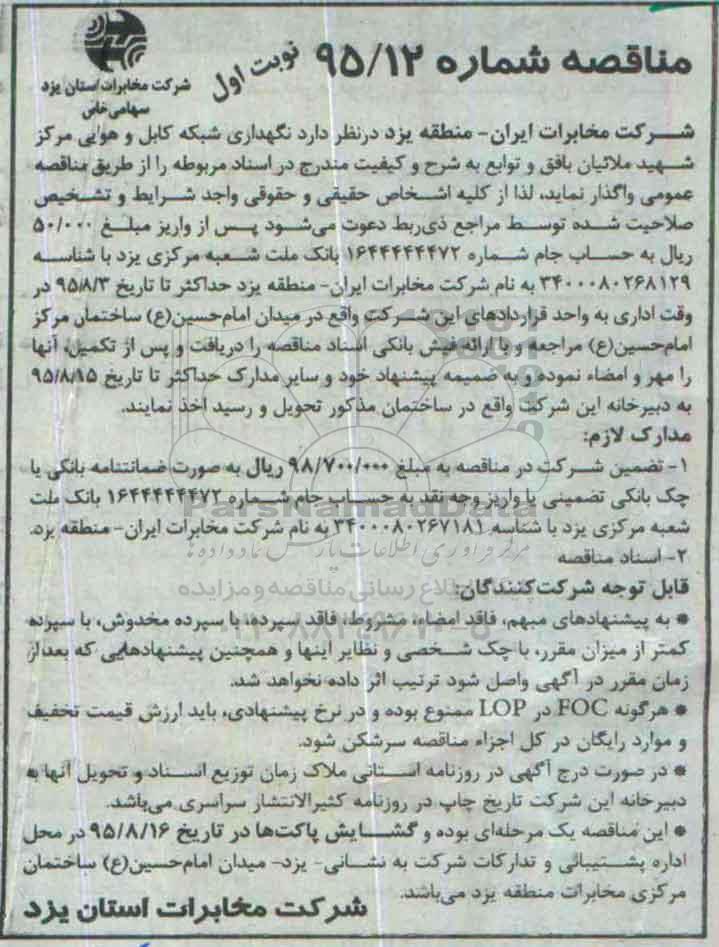 مناقصه شماره ۹۵/۱۲
نوبت اول
شرکت مخابرات استان یزد
سهامی خاص
شرکت مخابرات ایران- منطقه یزد درنظر دارد نگهداری شبکه کابل و هوایی مرکز
شهید ملائیان بافق و توابع به شرح و کیفیت مندرج در اسناد مربوطه را از طریق مناقصه
عمومی واگذار نماید، لذا از کلیه اشخاص حقیقی و حقوقی واجد شرایط و تشخیص
صلاحیت شده توسط مراجع ذی‌ربط دعوت می‌شود پس از واریز مبلغ ۵۰/۰۰۰
ریال به حساب جام شماره ۱۶۴۴۴۴۴۴۷۲ بانک ملت شعبه مرکزی یزد با شناسه
۳۴۰۰۰۸۰۲۶۸۱۲۹ به نام شرکت مخابرات ایران- منطقه یزد حداکثر تا تاریخ ۹۵/۸/۳ در
وقت اداری به واحد قراردادهای این شرکت واقع در میدان امام‌حسین(ع) ساختمان مرکز
امام‌حسین(ع) مراجعه و با ارائه فیش بانکی اسناد مناقصه را دریافت و پس از تکمیل، آنها
را مهر و امضاء نموده و به ضمیمه پیشنهاد خود و سایر مدارک حداکثر تا تاریخ ۹۵/۸/۱۵
به دبیرخانه این شرکت واقع در ساختمان مذکور تحویل و رسید اخذ نمایند.
مدارک لازم:
۱- تضمین شرکت در مناقصه به مبلغ ۹۸/۷۰۰/۰۰۰ ریال به صورت ضمانتنامه بانکی یا
چک بانکی تضمینی یا واریز وجه نقد به حساب جام شماره ۱۶۴۴۴۴۴۴۷۲ بانک ملت
ParsNamadData
شعبه مرکزی یزد با شناسه ۳۴۰۰۰۸۰۲۶۷۱۸۱ به نام شرکت مخابرات ایران- منطقه یزد.
۲- اسناد مناقصه
مرکز فرآوری اطلاعات پارس نماد داده ها
اطلاع رسانی مناقصه و مزایده
قابل توجه شرکت‌کنندگان:
* به پیشنهادهای مبهم، فاقد امضاء، مشروط، فاقد سپرده، یا سپرده مخدوش، یا سپرده
کمتر از میزان مقرر، یا چک شخصی و نظایر اینها و همچنین پیشنهادهایی که بعد از
زمان مقرر در آگهی واصل شود ترتیب اثر داده نخواهد شد.
* هرگونه FOC در LOP ممنوع بوده و در نرخ پیشنهادی، باید ارزش قیمت تخفیف
و موارد رایگان در کل اجزاء مناقصه سرشکن شود.
* در صورت درج آگهی در روزنامه استانی ملاک زمان توزیع اسناد و تحویل آنها به
دبیرخانه این شرکت تاریخ چاپ در روزنامه کثیرالانتشار سراسری می‌باشد.
* این مناقصه یک مرحله‌ای بوده و گشایش پاکت‌ها در تاریخ ۹۵/۸/۱۶ در محل
اداره پشتیبانی و تدارکات شرکت به نشانی- یزد- میدان امام‌حسین(ع) ساختمان
مرکزی مخابرات منطقه یزد می‌باشد.
شرکت مخابرات استان یزد